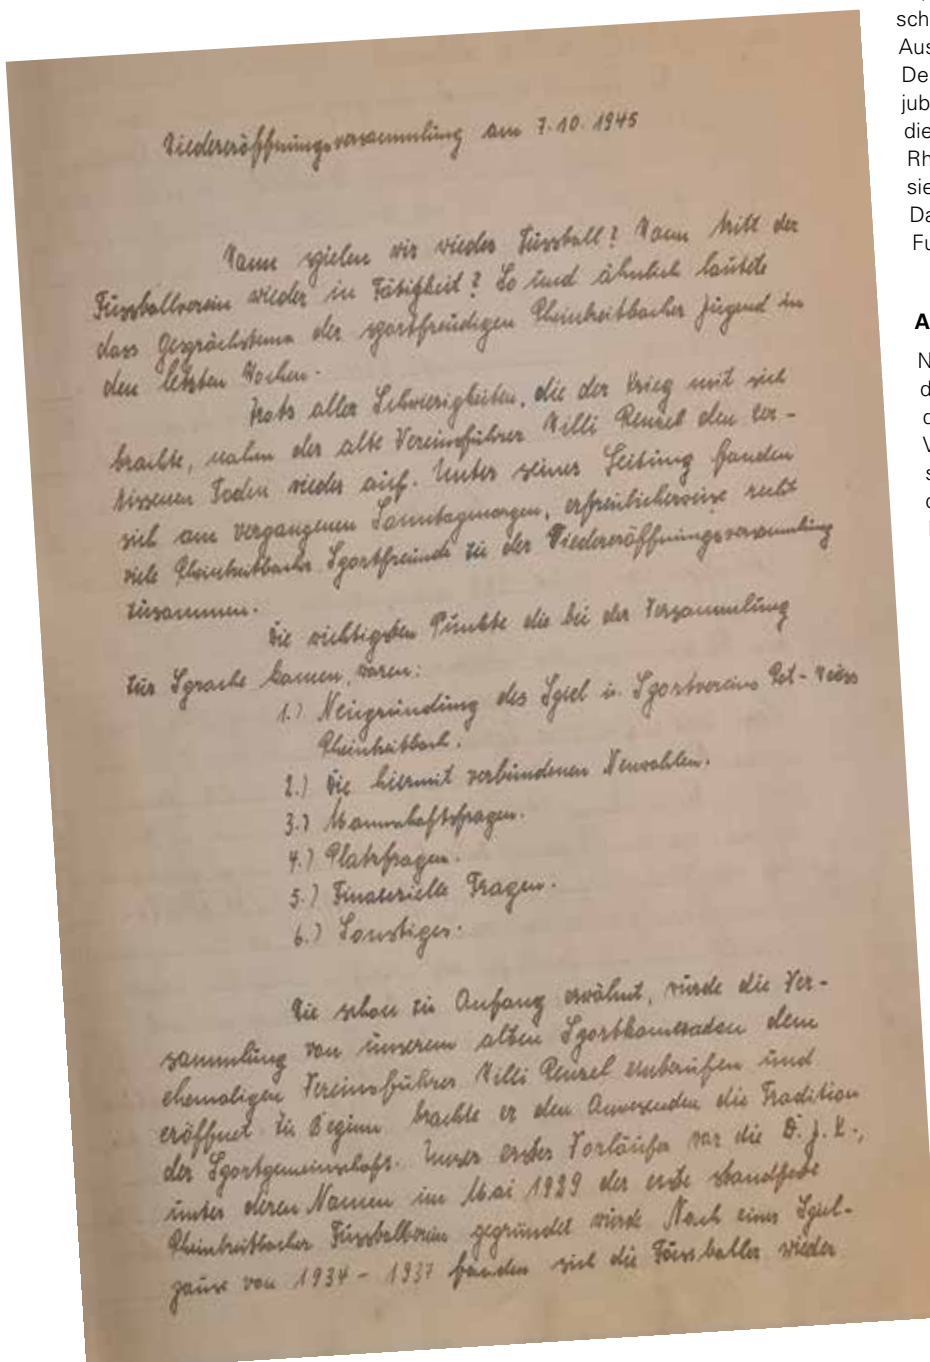 Wiedereröffnungsversammlung am 7.10.1945
Wann spielen wir wieder Fussball? Wann tritt der
Fussballverein wieder in Tätigkeit? So und ähnlich lautete
dass Gesprächstema der sportfreudigen Rheinbreitbacher Jugend in
den letzten Wochen.
Trotz aller Schwierigkeiten, die der Krieg mit sich
brachte, nahm der alte Vereinsführer Willi Renzel den zer-
rissenen Faden wieder auf. Unter seiner Leitung fanden
sich am vergangenen Sonntagmorgen, erfreulicherweise recht
viele Rheinbreitbacher Sportfreunde zu der Wiedereröffnungsversammlung
zusammen.
Die wichtigsten Punkte die bei der Versammlung
zur Sprache kamen, waren:
1.) Neugründung des Spiel u. Sportvereins Rot-Weiss
Rheinbreitbach.
2.) Die hiermit verbundenen Neuwahlen.
3.) Mannschaftsfragen.
4.) Platzfragen.
5.) Finanzielle Fragen.
6.) Sonstiges.
Wie schon zu Anfang erwähnt, wurde die Ver-
sammlung von unserem alten Sportkameraden dem
ehemaligen Vereinsführer Willi Renzel einberufen und
eröffnet. Zu Beginn brachte er den Anwesenden die Tradition
der Sportgemeinschaft. Unser erster Vorläufer war die D.J.K.,
unter deren Namen im Mai 1929 der erste standfeste
Rheinbreitbacher Fussballverein gegründet wurde. Nach einer Spiel-
pause von 1934 - 1937 fanden sich die Fussballer wieder
sch
Aus
De
jub
die
Rh
sie
Da
Fu
A
N
d
V
s